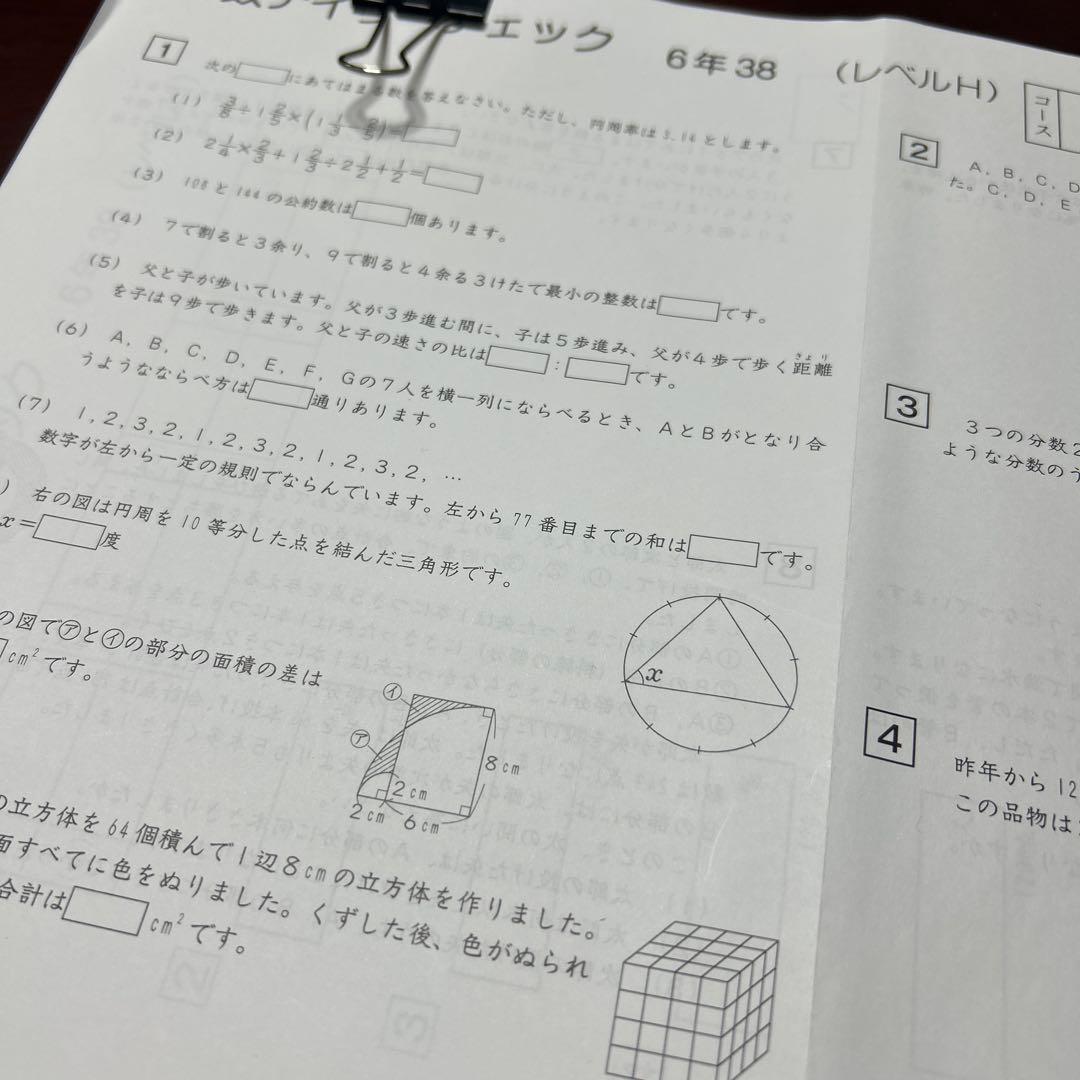 ェック 6年38 (レベルH)
コース
1 次の□にあてはまる数を答えなさい。ただし、円周率は3.14とします。
(1) 3/8÷1 2/5×(1 1/3−2/5)=□
(2) 2 1/4×2/3+1 2/3÷2 1/2+1/2=□
(3) 108と144の公約数は□個あります。
(4) 7で割ると3余り、9で割ると4余る3けたで最小の整数は□です。
(5) 父と子が歩いています。父が3歩進む間に、子は5歩進み、父が4歩で歩く距離
きょり
を子は9歩で歩きます。父と子の速さの比は□:□です。
(6) A, B, C, D, E, F, Gの7人を横一列にならべるとき、AとBがとなり合
うようなならべ方は□通りあります。
(7) 1, 2, 3, 2, 1, 2, 3, 2, 1, 2, 3, 2, …
数字が左から一定の規則でならんでいます。左から77番目までの和は□です。
) 右の図は円周を10等分した点を結んだ三角形です。
x=□度
x
の図で㋐と㋑の部分の面積の差は
cm²です。
㋑
㋐
8cm
2cm
2cm 6cm
の立方体を64個積んで1辺8cmの立方体を作りました。
面すべてに色をぬりました。くずした後、色がぬられ
合計は□cm²です。
2 A, B, C, D
た。C, D, E
3 3つの分数2
ような分数のう
4 昨年から12
この品物は